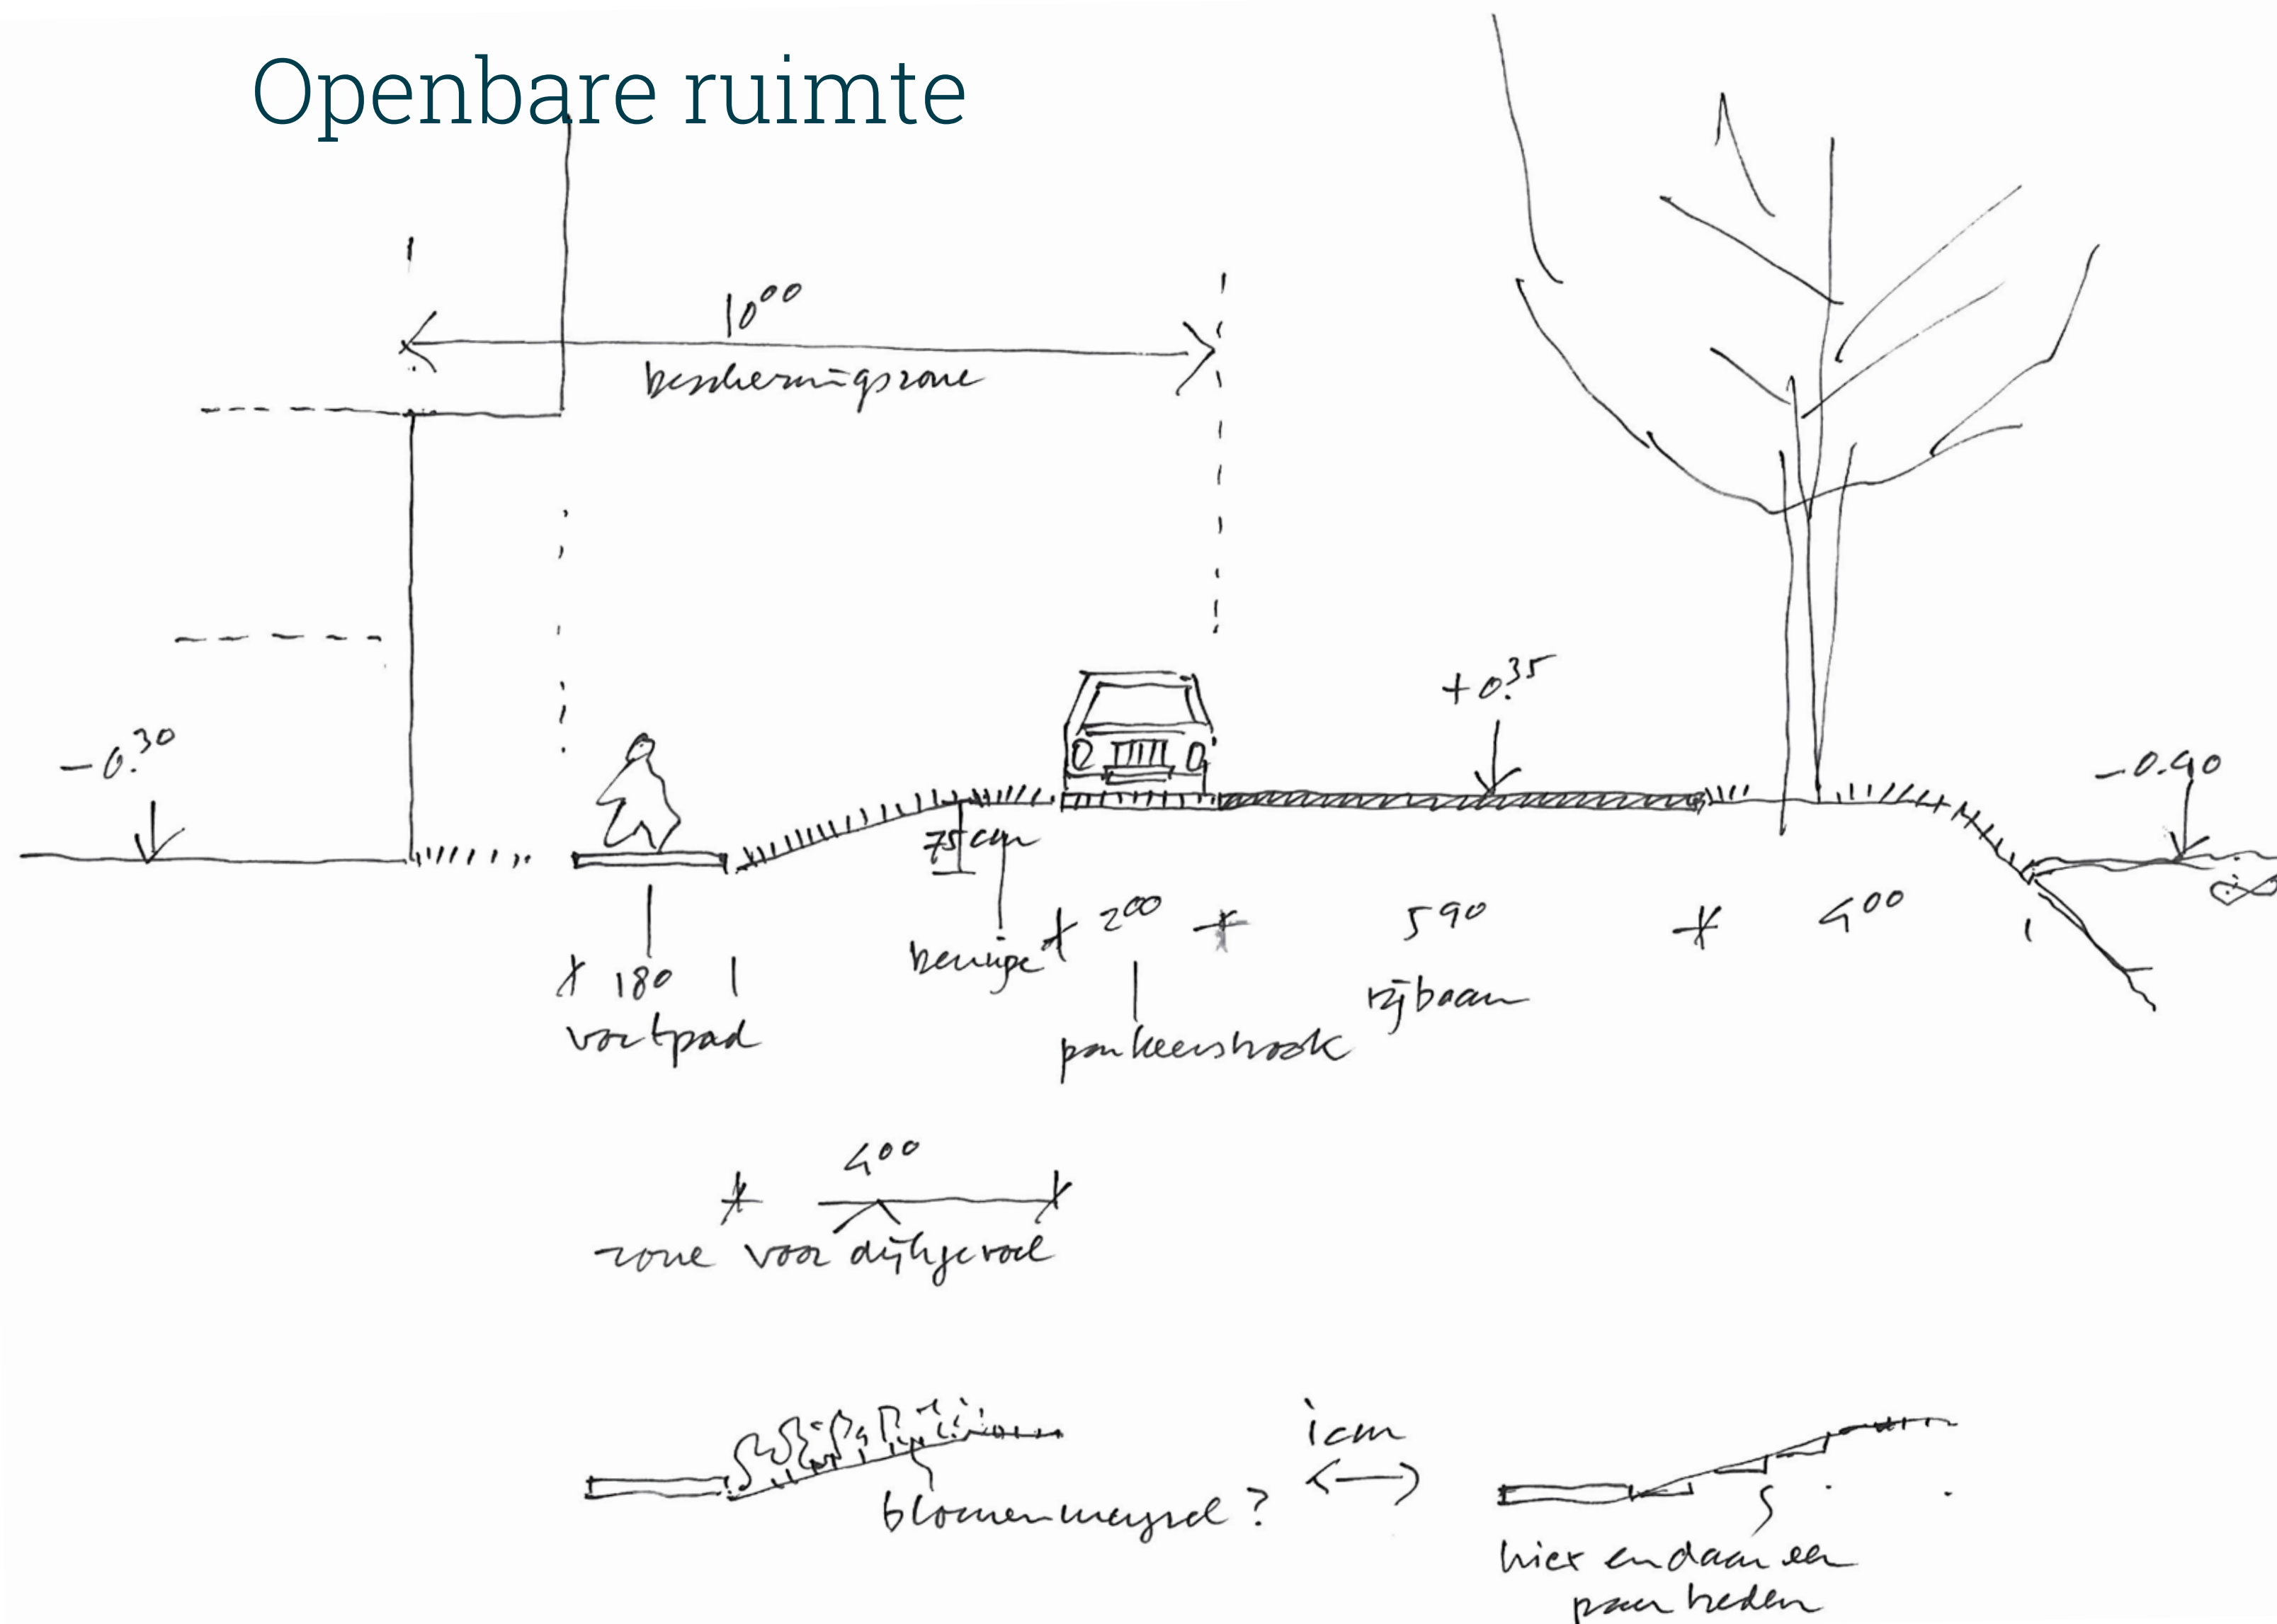 Openbare ruimte
10⁰⁰
beschermingszone
+0.³⁵
-0.³⁰
-0.40
75 cm
2⁰⁰
5 90
4⁰⁰
180
rijbaan
voetpad
parkeerstrook
4⁰⁰
zone voor dijkgevoel
icm
bloemenmengsel ?
hier en daar een
paar treden